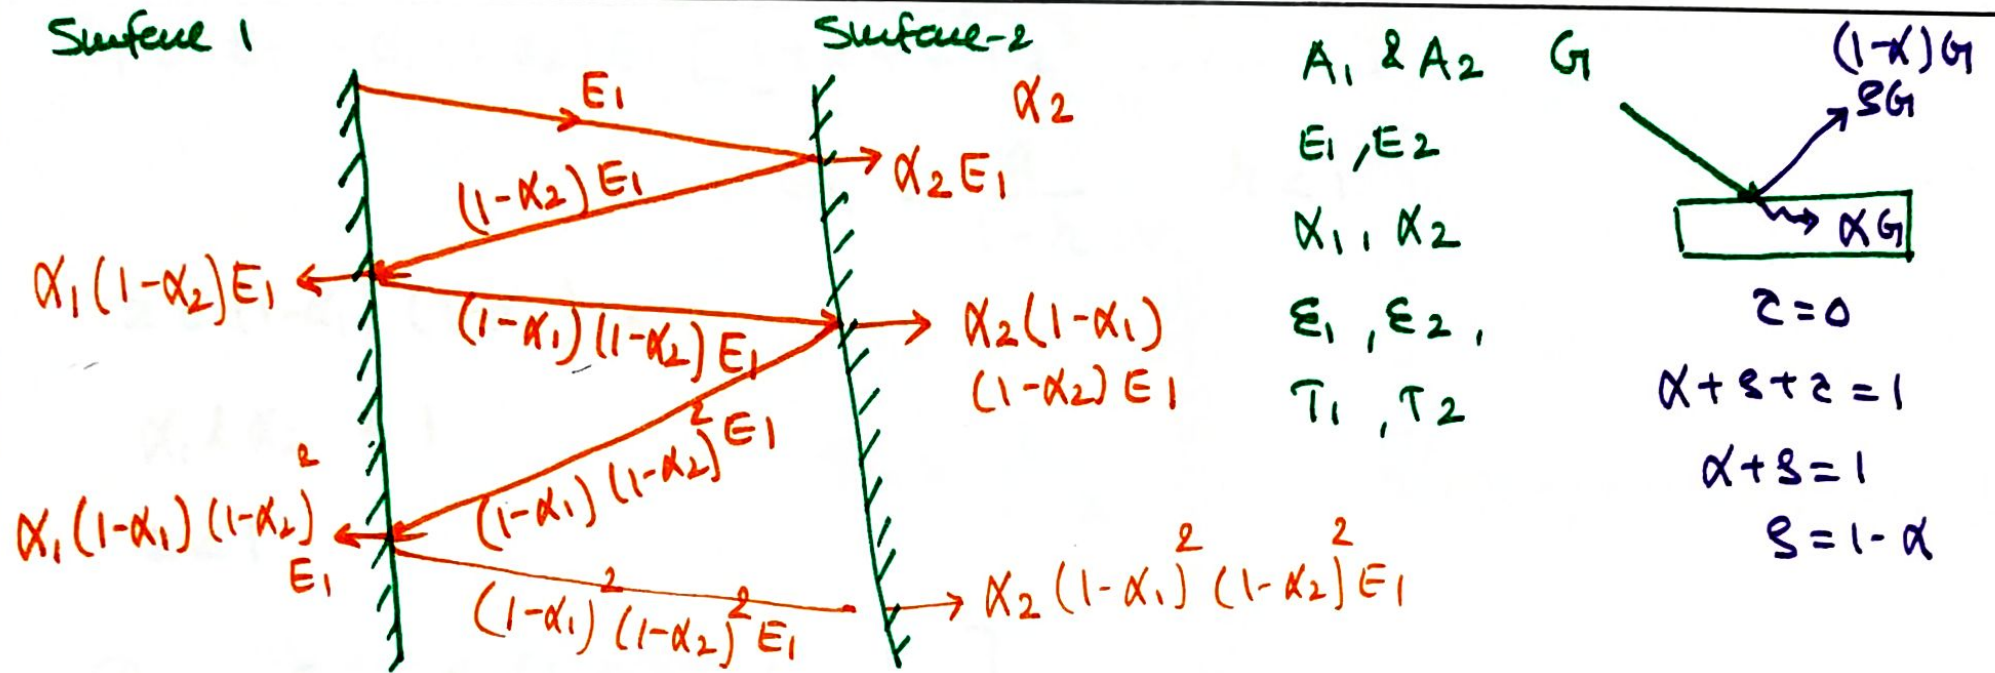 Surface 1
Surface-2
E₁
α₂
α₂E₁
(1-α₂)E₁
α₁(1-α₂)E₁
(1-α₁)(1-α₂)E₁
α₂(1-α₁)
(1-α₂)E₁
(1-α₁)(1-α₂)²E₁
α₁(1-α₁)(1-α₂)²
E₁
(1-α₁)²(1-α₂)²E₁
α₂(1-α₁)²(1-α₂)²E₁
A₁ & A₂
E₁, E₂
α₁, α₂
ε₁, ε₂,
T₁, T₂
G
(1-α)G
ρG
αG
τ=0
α+ρ+τ=1
α+ρ=1
ρ=1-α